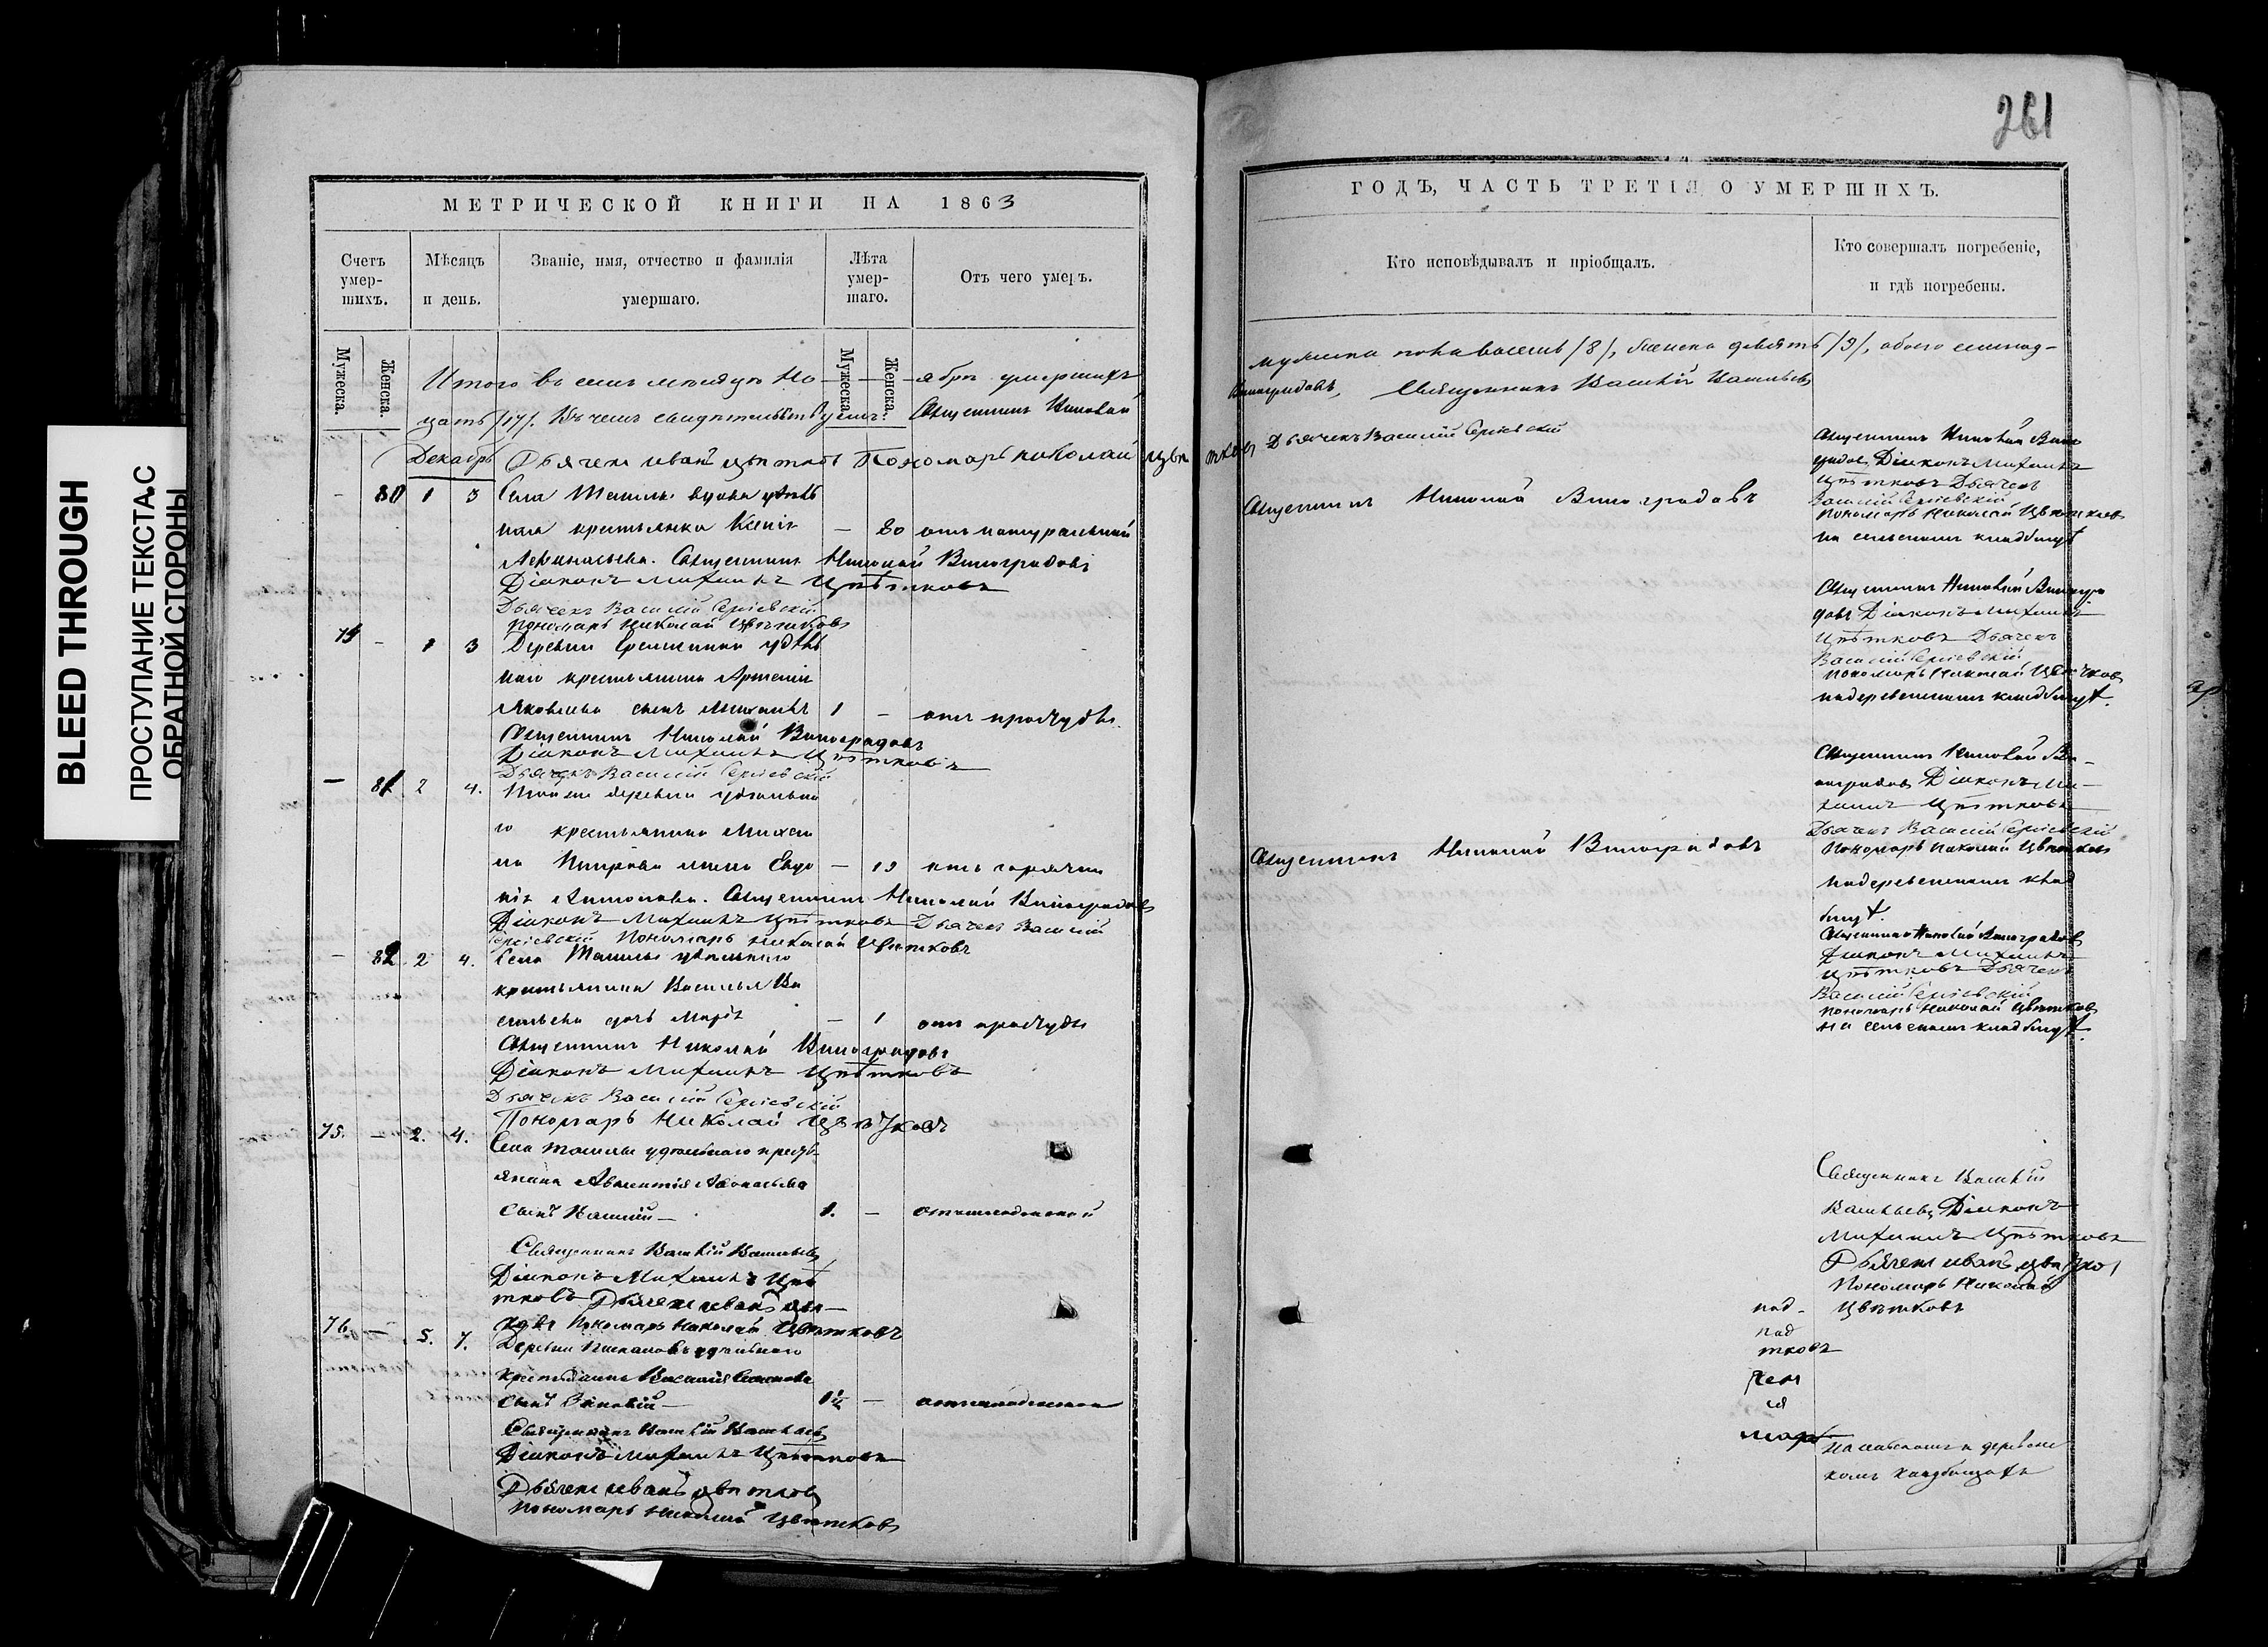 BLEED THROUGH
ПРОСТУПАНИЕ ТЕКСТА С
ОБРАТНОЙ СТОРОНЫ
МЕТРИЧЕСКОЙ КНИГИ НА 1863
Счетъ умер-шихъ.
Мѣсяцъ и день.
Званіе, имя, отчество и фамилія умершаго.
Лѣта умер-шаго.
Отъ чего умеръ.
Мужеска. Женска.
Мужеска. Женска.
Итого въ семъ мѣсяцѣ Но — — — ябрѣ умершихъ
цать /17/. Въ чемъ свидѣтельствуемъ: Священникъ Николай
Декабрь Дьячекъ Иванъ Цвѣтковъ Пономарь Николай Цвѣ
- 80 1 3 Села вдова удѣль
ная крестьянка — 80 отъ натуральной
Аѳанасьева. Священникъ Николай Виноградовъ
Діаконъ Михаилъ Цвѣтковъ
Дьячекъ Василій Сергіевскій
Пономарь Николай Цвѣтковъ
- 1 3 Деревни удѣль
наго крестьянина
Яковлева сынъ Михаилъ 1 — отъ простуды.
Священникъ Николай Виноградовъ
Діаконъ Михаилъ Цвѣтковъ
Дьячекъ Василій Сергіевскій
— 81 2 4. Той же деревни удѣльна
го крестьянина Михаи
ла жена Евдо — отъ горячки
кія Антонова. Священникъ Николай Виноградовъ
Діаконъ Михаилъ Цвѣтковъ Дьячекъ Василій
Сергіевскій Пономарь Николай Цвѣтковъ
- 82 2 4. Села удѣльнаго
крестьянина Василья Ва
сильева дочь Марія — 1 отъ простуды
Священникъ Николай Виноградовъ
Діаконъ Михаилъ Цвѣтковъ
Дьячекъ Василій Сергіевскій
Пономарь Николай Цвѣтковъ
75. — 2. 4.
Села удѣльнаго кресть-
янина
сынъ Василій — 1. —
Священникъ Василій Васильевъ
Діаконъ Михаилъ Цвѣ
тковъ Дьячекъ Иванъ Цвѣ—
тковъ Пономарь Николай Цвѣтковъ
76. — 5. 7.
Деревни удѣльнаго
крестьянина Василія Семенова
сынъ Зиновій — 1½ —
Священникъ Василій Васильевъ
Діаконъ Михаилъ Цвѣтковъ
Дьячекъ Иванъ Цвѣтковъ
Пономарь Николай Цвѣтковъ
261
ГОДЪ, ЧАСТЬ ТРЕТІЯ О УМЕРШИХЪ.
Кто исповѣдывалъ и пріобщалъ.
Кто совершалъ погребеніе, и гдѣ погребены.
мужеска пола восемь /8/, женска девять /9/, обоего семнад-
Виноградовъ, Священникъ Василій Васильевъ
тковъ Дьячекъ Василій Сергіевскій
Священникъ Николай Виноградовъ
Священникъ Николай Вино
градовъ Діаконъ Михаилъ
Цвѣтковъ Дьячекъ
Василій Сергіевскій
Пономарь Николай Цвѣтковъ
на сельскомъ кладбищѣ
Священникъ Николай Виногра
довъ Діаконъ Михаилъ
Цвѣтковъ Дьячекъ
Василій Сергіевскій
Пономарь Николай Цвѣтковъ
на деревенскомъ кладбищѣ.
Священникъ Николай Ви-
ноградовъ Діаконъ Ми-
хаилъ Цвѣтковъ
Дьячекъ Василій Сергіевскій
Священникъ Николай Виноградовъ
Пономарь Николай Цвѣтковъ
на деревенскомъ клад
бищѣ.
Священникъ Николай Виноградовъ
Діаконъ Михаилъ
Цвѣтковъ Дьячекъ
Василій Сергіевскій
Пономарь Николай Цвѣтковъ
на сельскомъ кладбищѣ.
Священникъ Василій
Васильевъ Діаконъ
Михаилъ Цвѣтковъ
Дьячекъ Иванъ Цвѣтков
Пономарь Николай
Цвѣтковъ
тковъ
на сельскомъ и деревенс
комъ кладбищахъ